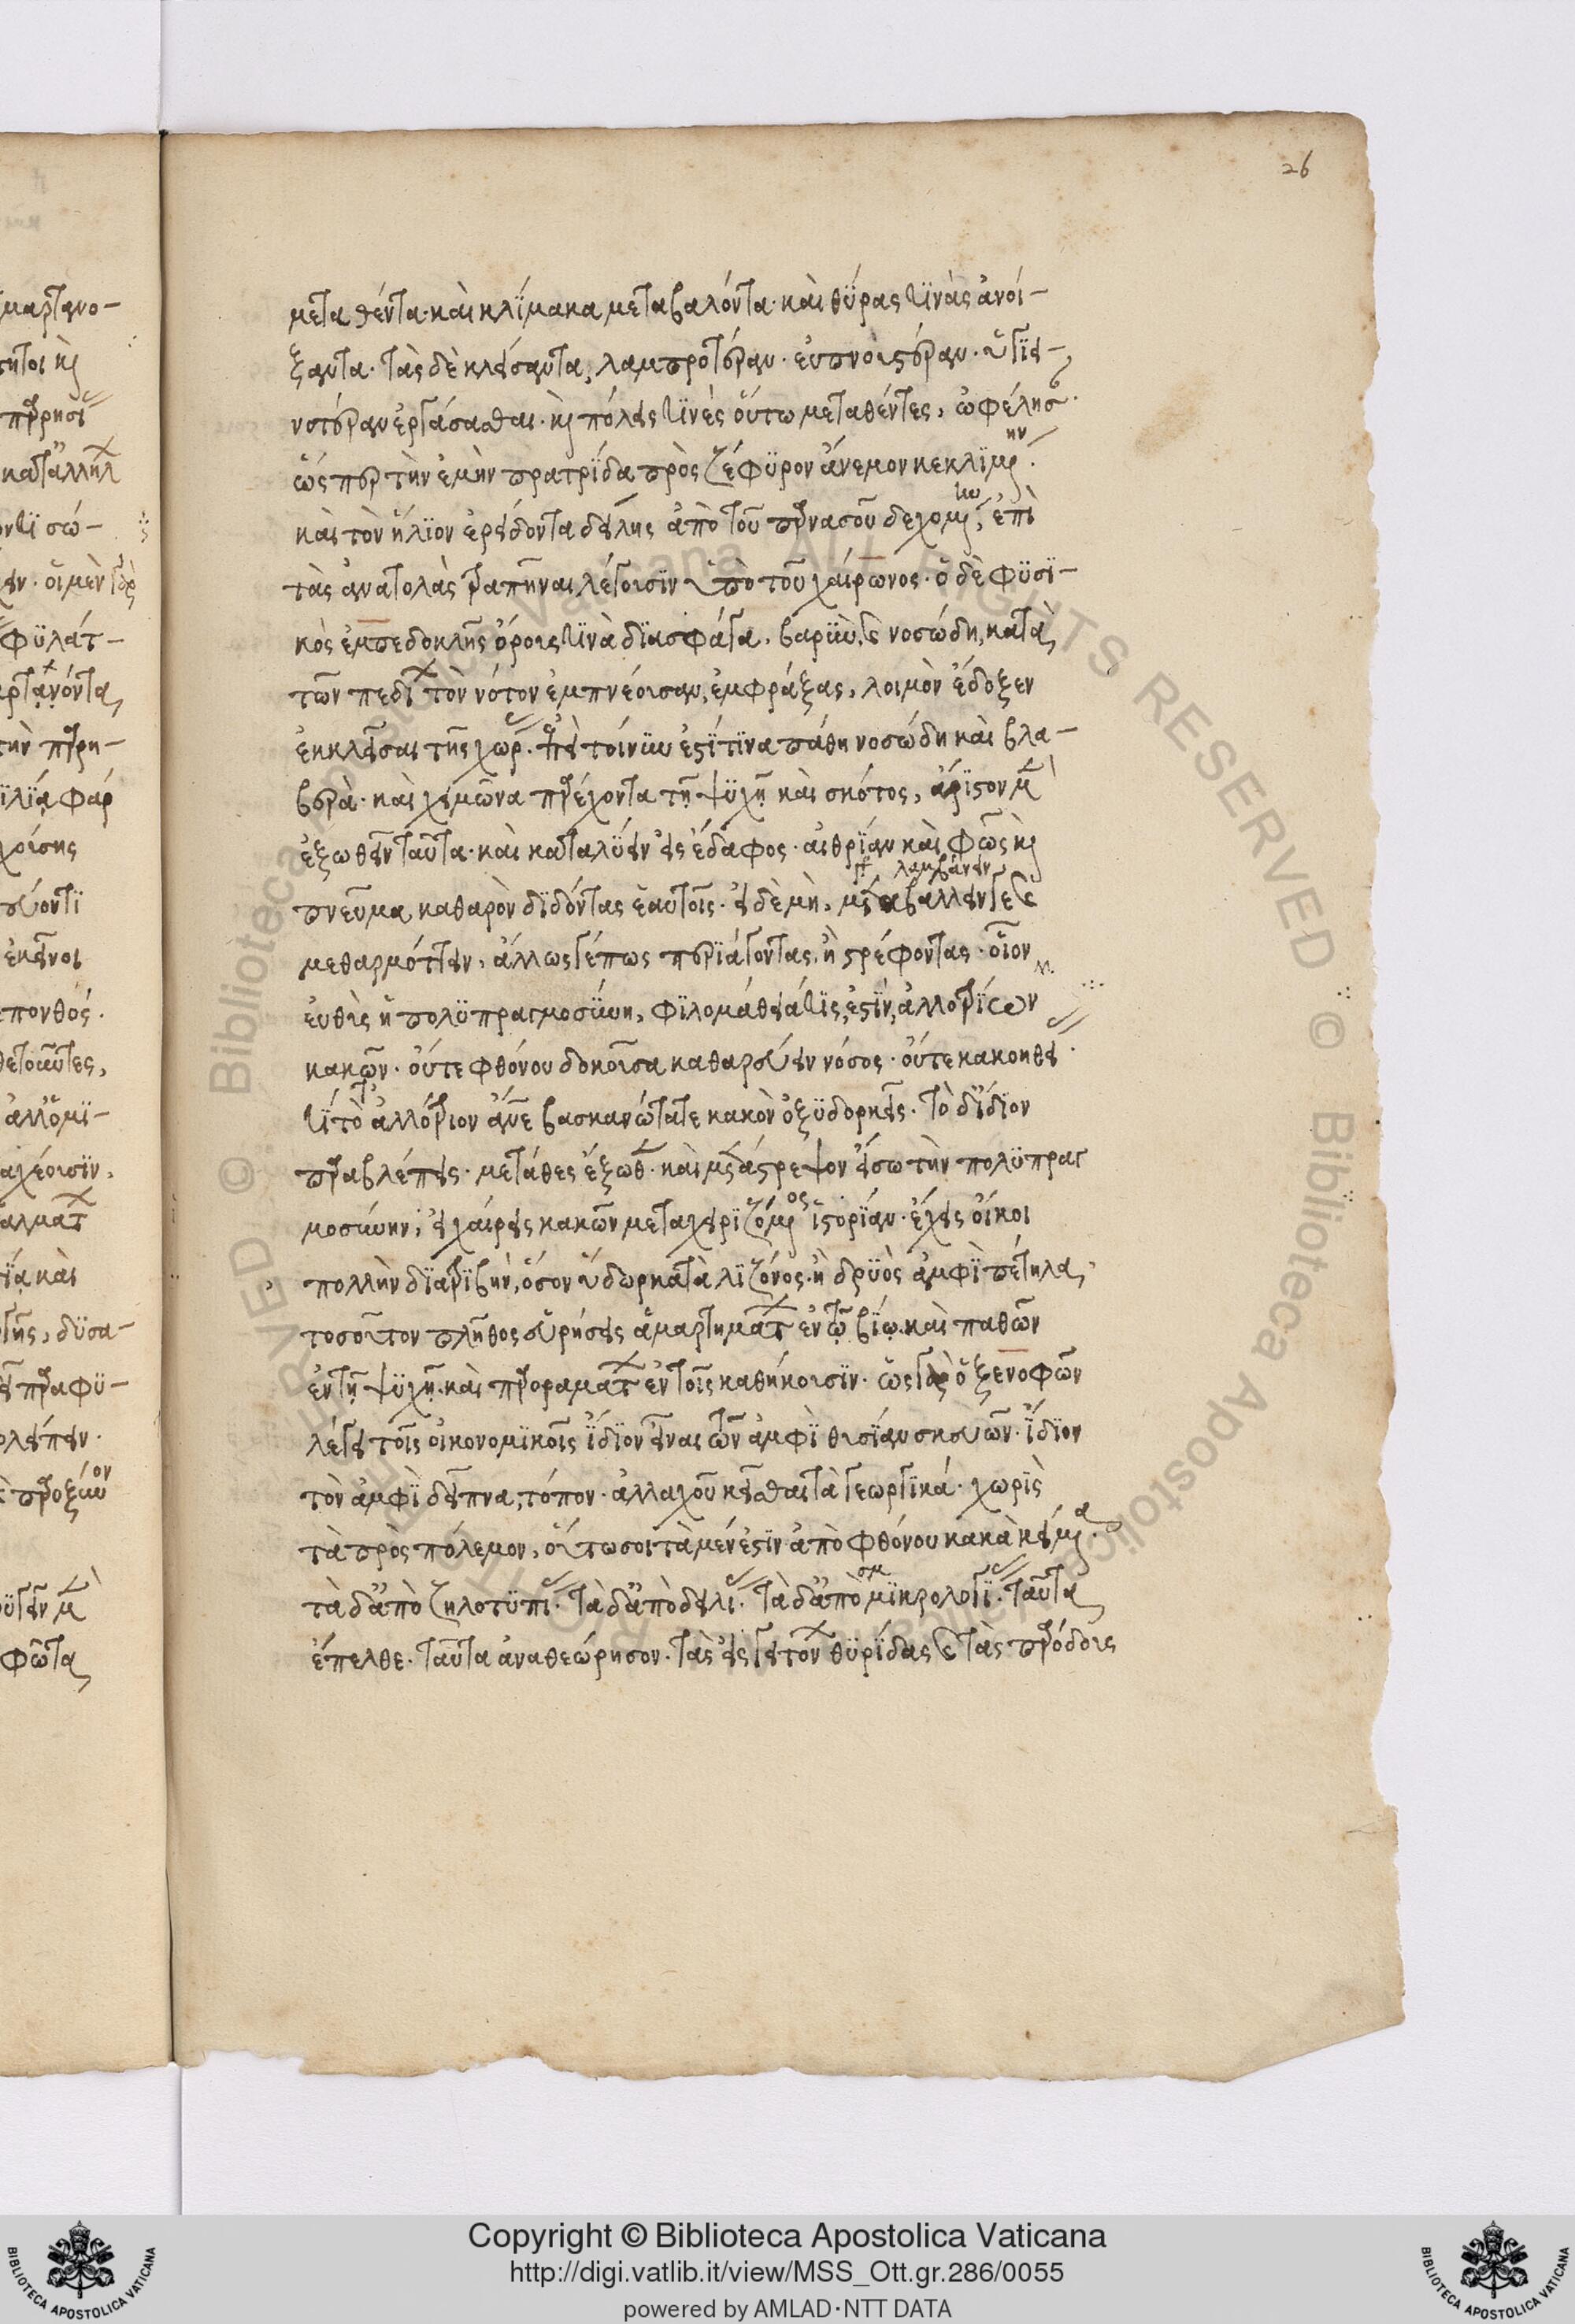 26
μεταθέντα· καὶ κλίμακα μεταβαλόντα· καὶ θύρας τινὰς ἀνοί-
ξαντα· τὰς δὲ κλείσαντα, λαμπροτέραν· εὐπνουστέραν· ὑγιει-
νοτέραν ἐργάσασθαι· καὶ πόλεις τινὲς οὕτω μεταθέντες, ὠφέλησ
ὥσπερ τὴν ἐμὴν πατρίδα πρὸς ζέφυρον ἄνεμον κεκλιμένην
καὶ τὸν ἥλιον ἐρείδοντα δείλης ἀπὸ τοῦ παρνασοῦ δεχομένην, ἐπὶ
τὰς ἀνατολὰς τραπῆναι λέγουσιν ὑπὸ τοῦ χαίρωνος· ὁ δὲ φυσι-
κὸς ἐμπεδοκλῆς ὄρους τινὰ διασφάγα, βαρὺν καὶ νοσώδη, κατὰ
τῶν πεδίων τὸν νότον ἐμπνέουσαν, ἐμφράξας, λοιμὸν ἔδοξεν
ἐκκλεῖσαι τῆς χώρας· ἐπεὶ τοίνυν ἐστί τινα πάθη νοσώδη καὶ βλα-
βερὰ· καὶ χειμῶνα παρέχοντα τῇ ψυχῇ καὶ σκότος, ἄριστον μὲν
ἐξωθεῖν ταῦτα· καὶ καταλύειν εἰς ἔδαφος· αἰθρίαν καὶ φῶς καὶ
πνεῦμα καθαρὸν διδόντας ἑαυτοῖς· εἰ δὲ μὴ, μεταβάλλειν γε καὶ
μεταλαμβάνειν
μεθαρμόττειν, ἄλλως γέ πως περιάγοντας, ἢ στρέφοντας· οἷον
εὐθὺς ἡ πολυπραγμοσύνη, φιλομάθειά τις, ἐστὶν, ἀλλοτρίων
κακῶν· οὔτε φθόνου δοκοῦσα καθαρεύειν νόσος· οὔτε κακοηθείας·
τί τὸ ἀλλότριον ἄνθρωπε βασκανώτατε κακὸν ὀξυδορκεῖς· τὸ δ' ἴδιον
παραβλέπεις· μετάθες ἔξωθεν· καὶ μετάστρεψον εἴσω τὴν πολυπραγ
μοσύνην· εἰ χαίρεις κακῶν μεταχειριζόμενος ἱστορίαν· ἔχεις οἴκοι
πολλὴν διατριβήν, ὅσον ὕδωρ κατὰ λιζόνος· ἢ δρυὸς ἀμφὶ πέτηλα,
τοσοῦτον πλῆθος εὑρήσεις ἁμαρτημάτων ἐν τῷ βίῳ· καὶ παθῶν
ἐν τῇ ψυχῇ· καὶ παροραμάτων ἐν τοῖς καθήκουσιν· ὡς γὰρ ὁ ξενοφῶν
λέγει τοῖς οἰκονομικοῖς ἴδιον εἶναι τῶν ἀμφὶ θυσίαν σκευῶν· ἴδιον
τὸν ἀμφὶ δεῖπνα, τόπον· ἀλλαχοῦ κεῖσθαι τὰ γεωργικά· χωρὶς
τὰ πρὸς πόλεμον, οὕτω σοι τὰ μέν ἐστιν ἀπὸ φθόνου κακὰ κείμενα·
τὰ δ' ἀπὸ ζηλοτυπίας· τὰ δ' ἀπὸ δειλίας· τὰ δ' ἀπὸ σμικρολογίας· ταῦτα
ἔπελθε· ταῦτα ἀναθεώρησον· τὰς εἰς γειτόνων θυρίδας καὶ τὰς παρόδους
Copyright © Biblioteca Apostolica Vaticana
http://digi.vatlib.it/view/MSS_Ott.gr.286/0055
powered by AMLAD·NTT DATA